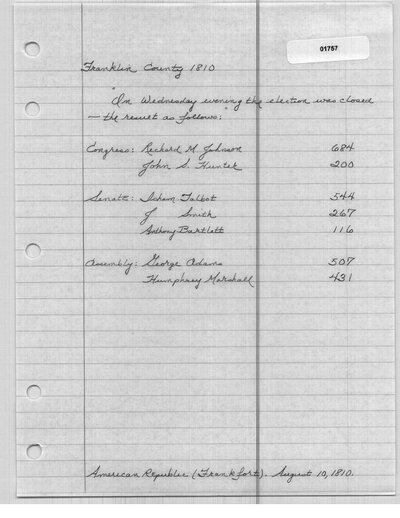 01757
Franklin County 1810
On Wednesday evening the election was closed
— the result as follows:
Congress: Richard M. Johnson 684
John S. Hunter 200
Senate: Isham Talbot 544
J Smith 267
Anthony Bartlett 116
Assembly: George Adams 507
Humphrey Marshall 431
American Republic (Frankfort). August 10, 1810.